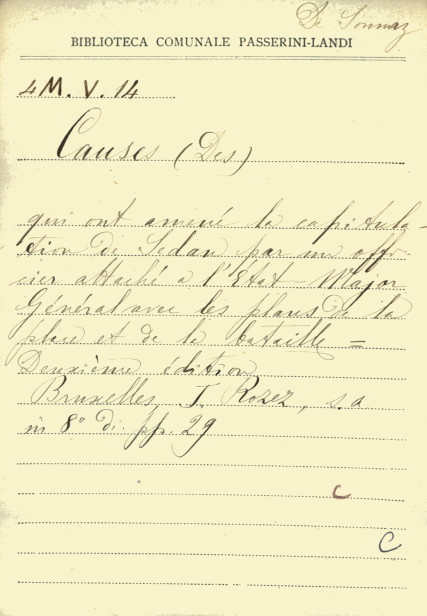 De Sonnaz
BIBLIOTECA COMUNALE PASSERINI-LANDI
4M. V. 14
Causes (Des)
qui ont amené la capitula-
tion de Sedan par un offi-
cier attaché a l'Etat-Major
Général avec les plans de la
place et de la bataille =
Deuxième édition
Bruxelles, J. Rozez, s.a
in 8° di pp. 29
C
C